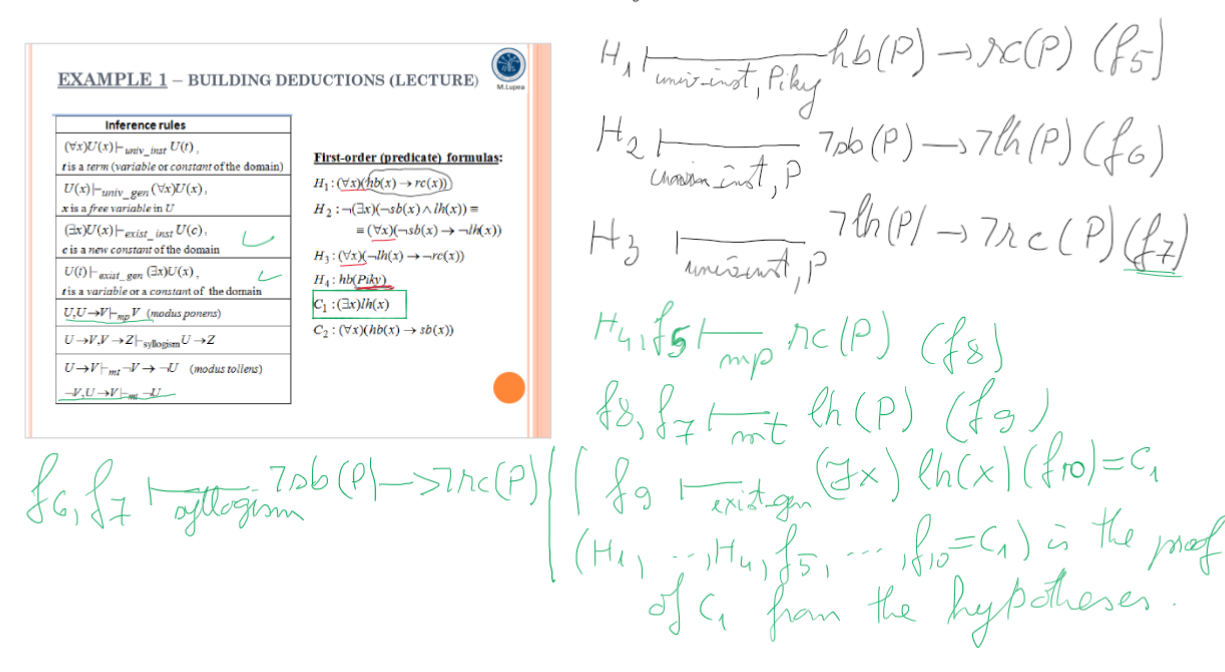 EXAMPLE 1 – BUILDING DEDUCTIONS (LECTURE)
M.Lupea
Inference rules
(∀x)U(x)⊢univ_inst U(t),
t is a term (variable or constant of the domain)
U(x)⊢univ_gen (∀x)U(x),
x is a free variable in U
(∃x)U(x)⊢exist_inst U(c),
c is a new constant of the domain
U(t)⊢exist_gen (∃x)U(x),
t is a variable or a constant of the domain
U,U→V⊢mp V (modus ponens)
U→V,V→Z⊢syllogism U→Z
U→V⊢mt ¬V→¬U (modus tollens)
¬V,U→V⊢mt ¬U
First-order (predicate) formulas:
H1:(∀x)(hb(x)→rc(x))
H2:¬(∃x)(¬sb(x)∧lh(x))≡
≡(∀x)(¬sb(x)→¬lh(x))
H3:(∀x)(¬lh(x)→¬rc(x))
H4:hb(Piky)
C1:(∃x)lh(x)
C2:(∀x)(hb(x)→sb(x))
H1 ⊢univ-inst, Piky hb(P)→rc(P) (f5)
H2 ⊢ inst, P ¬sb(P)→¬lh(P) (f6)
H3 ⊢univ inst, P ¬lh(P)→¬rc(P) (f7)
H4, f5 ⊢mp rc(P) (f8)
f8, f7 ⊢mt lh(P) (f9)
f6, f7 ⊢syllogism ¬sb(P)→¬rc(P)
f9 ⊢exist-gen (∃x) lh(x) (f10)=C1
(H1, ..., H4, f5, ..., f10=C1) is the proof
of C1 from the hypotheses.